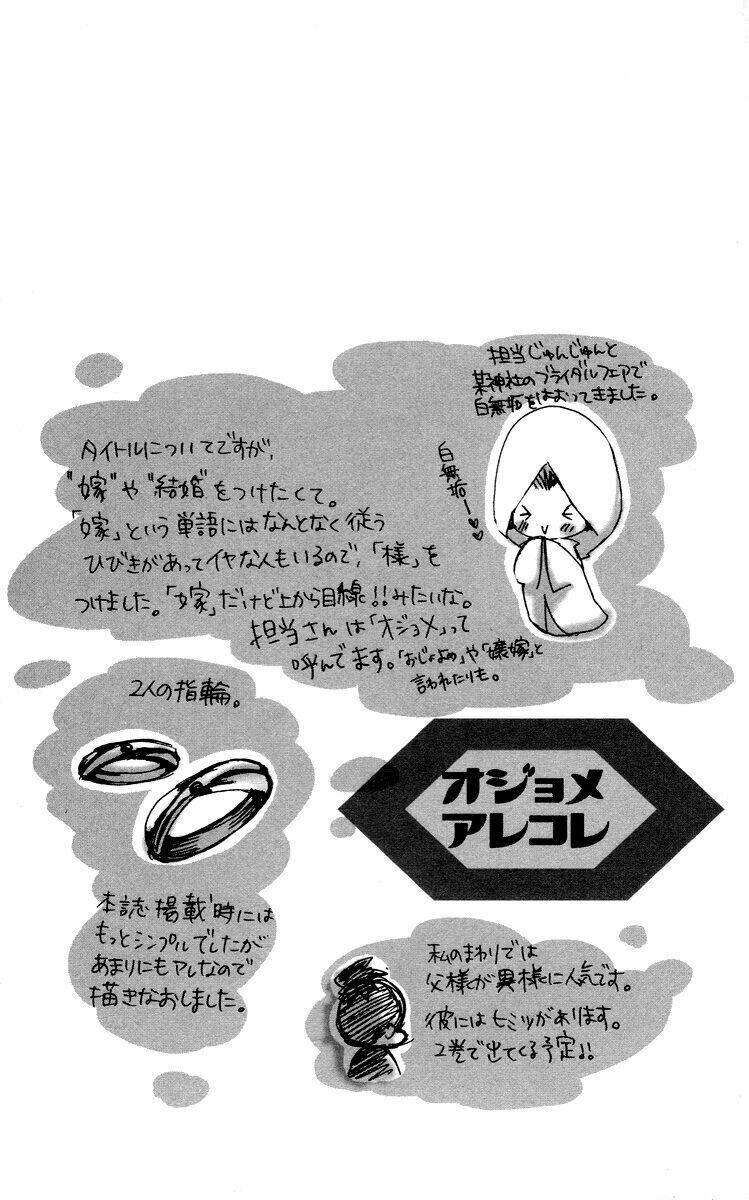 担当じゅんじゅんと
某神社のブライダルフェアで
白無垢をはおってきました。
白無垢ー♥♥
タイトルについてですが、
"嫁"や"結婚"をつけたくて。
「嫁」という単語にはなんとなく従う
ひびきがあってイヤな人もいるので、「様」を
つけました。「嫁」だけど上から目線!!みたいな。
担当さんは「オジョメ」って
呼んでます。「おじょよめ」や「嬢嫁」と
言われたりも。
2人の指輪。
本誌掲載時には
もっとシンプルでしたが
あまりにもアレなので
描きなおしました。
オジョメ
アレコレ
私のまわりでは
父様が異様に人気です。
彼にはヒミツがあります。
2巻で出てくる予定!!